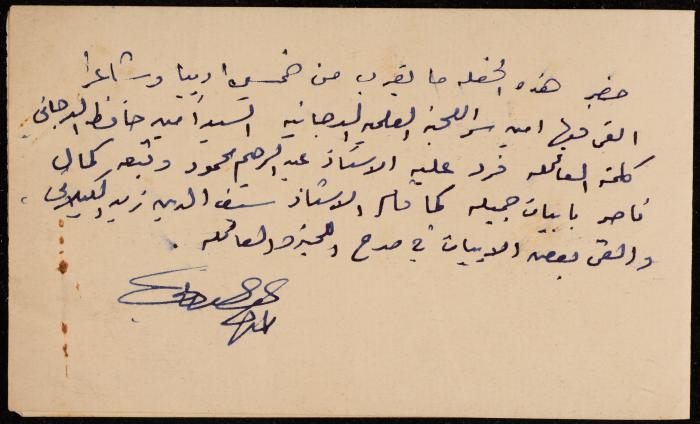 حضر هذه الحفله ما يقرب من خمسين اديبا وشاعرا
القى فيها امين سر اللجنة العلميه الدجانيه السيد امين حافظ الدجاني
كلمة العائله فرد عليه الاستاذ عبد الرحيم محمود وتبعه كمال
ناصر بابيات جميله كما قام الاستاذ سيف الدين زيد الكيلاني
والقى بعض الابيات في مدح اللجنة والعائله .